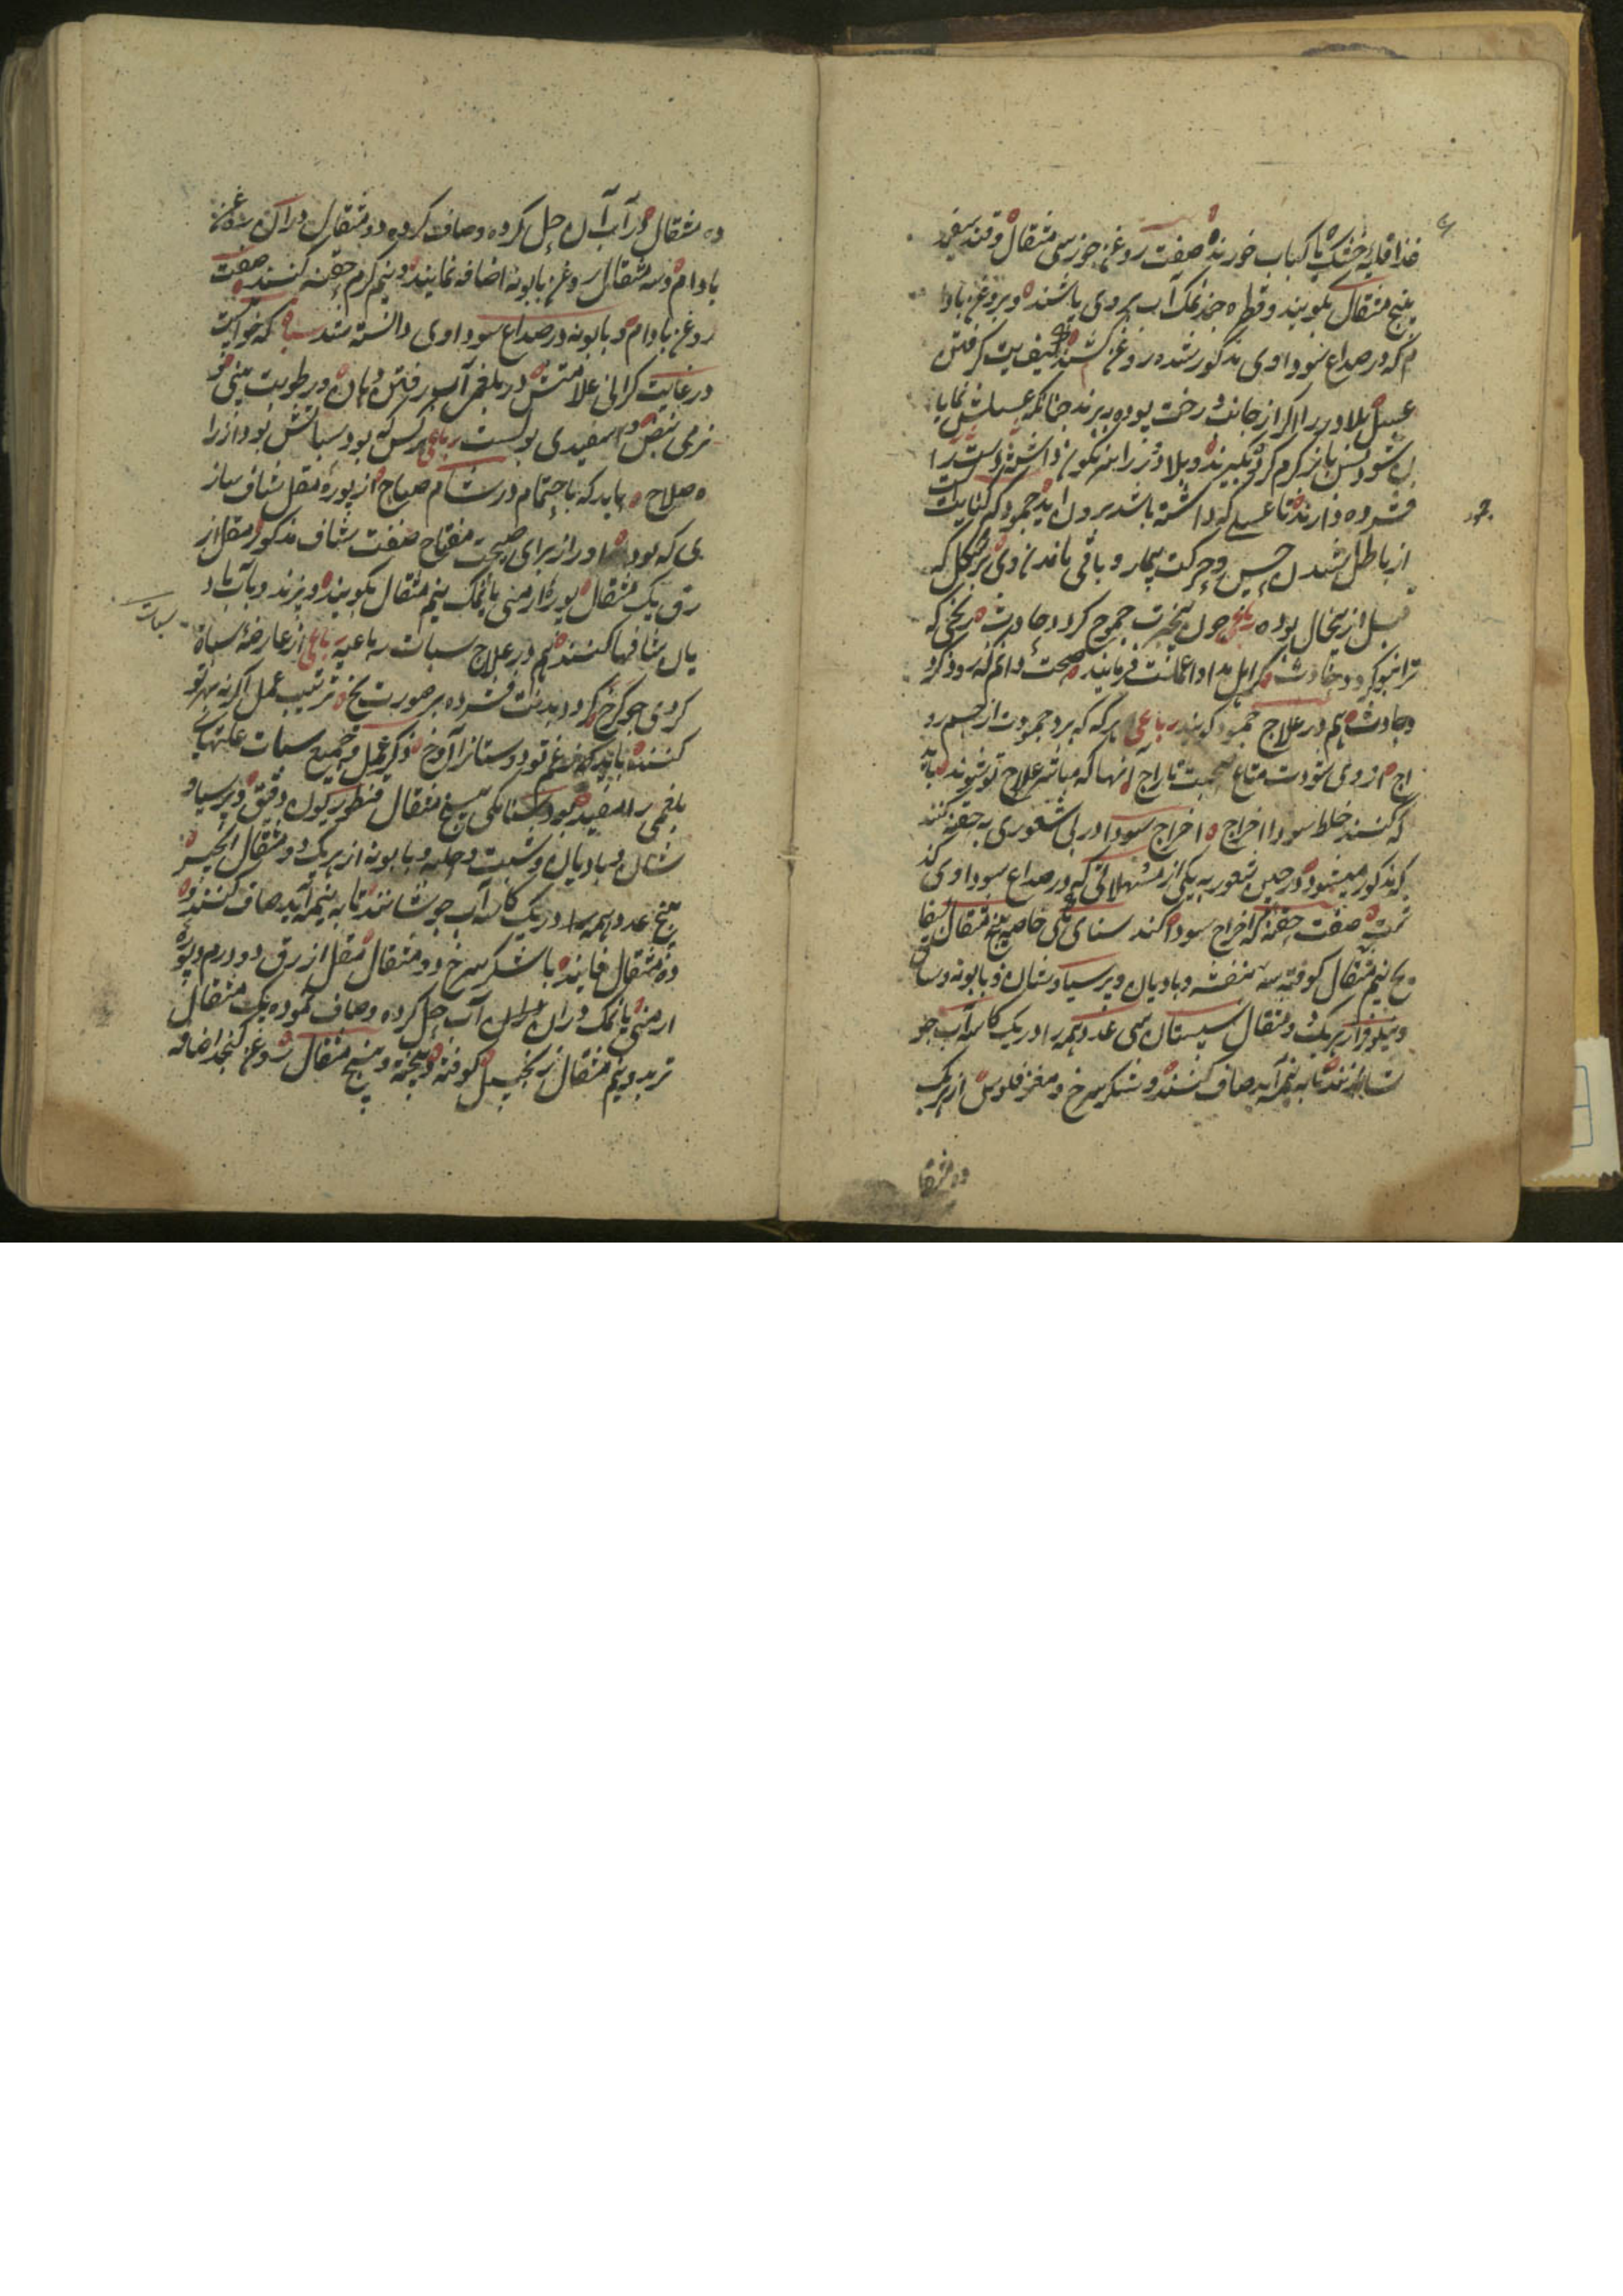 غذا قلیه خشک یا کباب خورند صفت روغن جوز سی مثقال و قند سفید
پنج مثقال بکوبند و قطره چند نمک آب بروی پاشند و بروغن بادا
م که در صداع سوداوی مذکور شد روغن کشند کیفیت گرفتن
عسل بلادر را اگر از جانب درخت بوده ببرند چنانکه عسلش نمایا
ن شود پس باز گرم کرده بگیرند و بلادر را سرنگون داشته دست را
فشرده دارند تا عسلی که داشته باشد برون اید جمود که کنایت
از باطل شدن حس و حرکت بیمار و باقی ماندن وی بر شکل که
قبل از بحال بوده رباعی چون بیخبرت جموح کردد حادث
ترا نبو کردد حادث کر اهل مداوا عملت فرمایند صحت دانم که رو کرد
و حادث هم در علاج جمود کویند رباعی هر که که برد جمودت از جسم رو
اج از وی شودت متاع صحبت تاراج آنها که مباشر علاج تو شوند باید
که کنند خلط سودا اخراج اخراج سودا در بی شعوری به حقنه کنند
که مذکور میشود و در حین شعور به یکی از مسهلاتی که در صداع سوداوی کذ
شت صفت حقنه که اخراج سودا کند سنای مکی خاصه پنج مثقال بسفا
یج نیم مثقال کوفته سه بنفشه و بادیان و پرسیاوشان و بابونه و سنا
و نیلوفر از هر یک دو مثقال سپستان سی عدد همه را در یک کاسه آب جو
شانند تا به نیمه آید صاف کنند و شکر سرخ و مغز فلوس از هر یک
ده مثقا
جمود
ده مثقال در آب آن حل کرده و صاف کرده دو مثقال دران روغن
بادام و سه مثقال روغن بابونه اضافه نمایند و نیم گرم حقنه کنند صفت
روغن بادام و بابونه در صداع سوداوی دانسته شد سبات که خوابیست
در غایت گرانی علامتش در بلغمی آب رفتن دهان و رطوبت بینی و
نرمی نبض و سفیدی بولست رباعی هر کس که بود سباتش بود از را
ه صلاح باید که باحتمام در شام صباح از بوره مقل شاف ساز
ی که بود او را از برای صحبت مفتاح صفت شاف مذکور مقل از
رق یک مثقال بوره ارمنی یا نمک نیم مثقال بکوبند و بپزند و بآب باد
یان شافها کنند هم در علاج سبات رباعیه رباعی از عارضه سباة
کردی چو کرخ کردد بدنت فشرده بر صورت یخ ترتیب عمل اگر نه بهر تو
کنند باید که ز غم تو دوستان را ل وخ ذکر عمل و جمیع سبات علتهای
بلغمی را مفید بود سنا مکی پنج مثقال قنطوریون دقیق و پرسیاو
شان و بادیان و شبت و حلبه و بابونه از هر یک دو مثقال انجیر
پنج عدد همه را در یک کاسه آب جوشانند تا به نیمه آید صاف کنند و
ده مثقال فانید یا شکر سرخ و دو مثقال مقل ازرق دو درم و بوره
ارمنی یا نمک دران آب حل کرده و صاف نموده یک مثقال
تربد و نیم مثقال زنجبیل کوفته و بیخته و پنج مثقال روغن کنجد اضافه
سبات